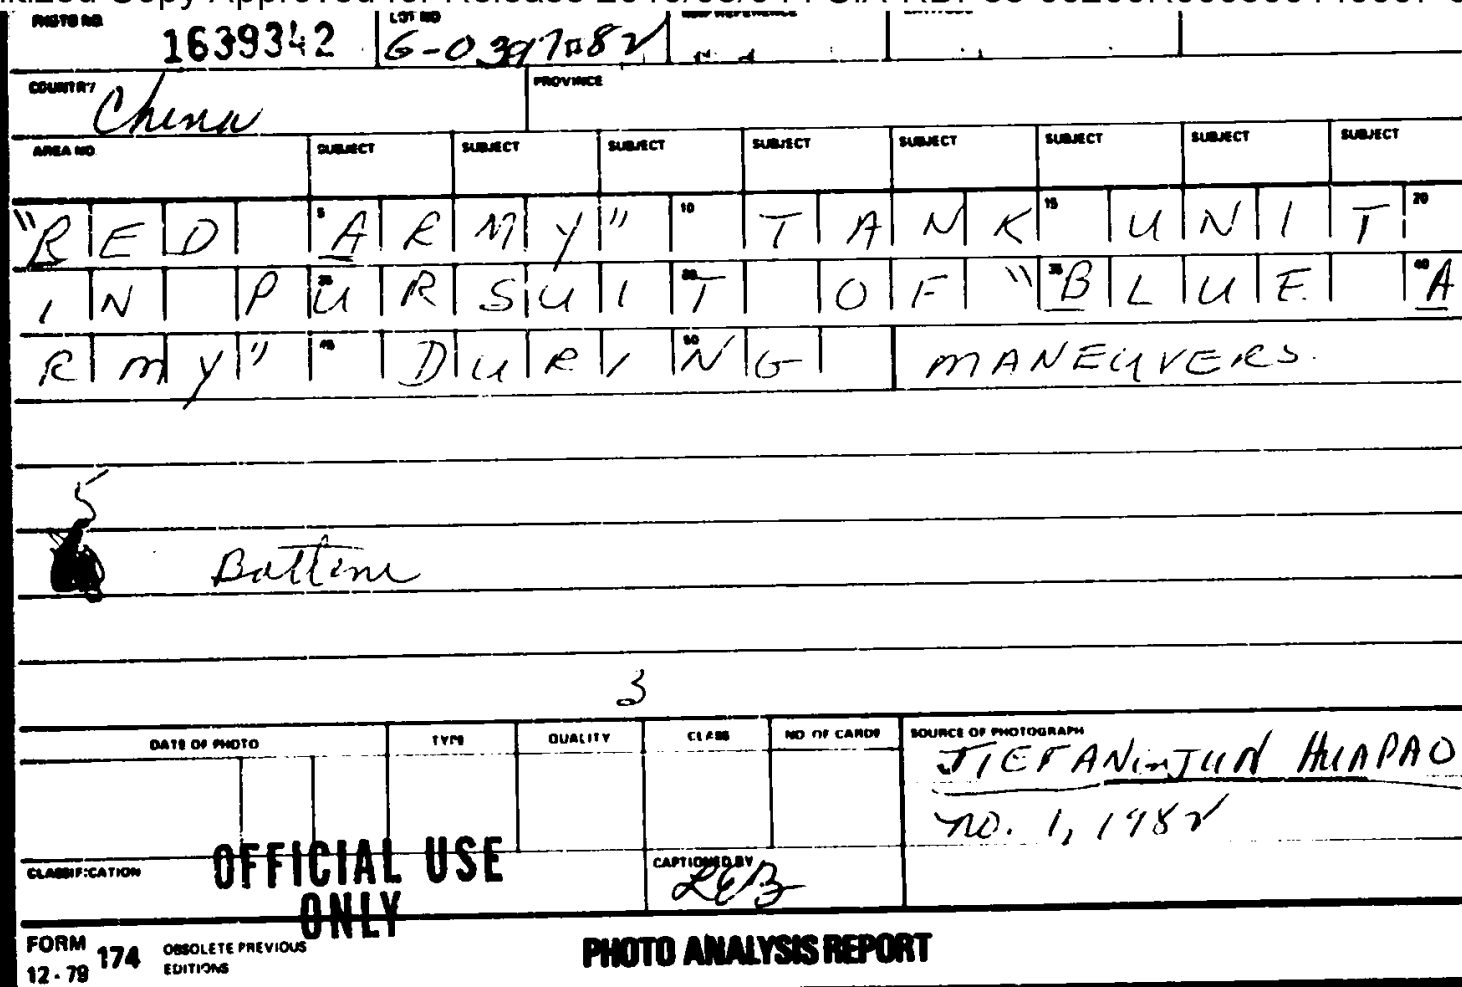 PHOTO NO. 1639342 LOT NO G-0397-82
COUNTRY China PROVINCE
AREA NO SUBJECT SUBJECT SUBJECT SUBJECT SUBJECT SUBJECT SUBJECT SUBJECT
"RED ARMY" TANK UNIT
IN PURSUIT OF "BLUE A
RMY" DURING MANEUVERS.
5
Bottom
3
DATE OF PHOTO TYPE QUALITY CLASS NO OF CARDS SOURCE OF PHOTOGRAPH
JIEFANJUN HUAPAO
no. 1, 1982
CLASSIFICATION OFFICIAL USE ONLY CAPTIONED BY LEB
FORM 12-79 174 OBSOLETE PREVIOUS EDITIONS PHOTO ANALYSIS REPORT